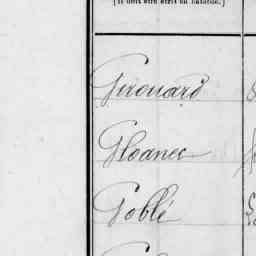 (Il doit être écrit en bâtarde.)
Girouard
Gloanec
Goblé